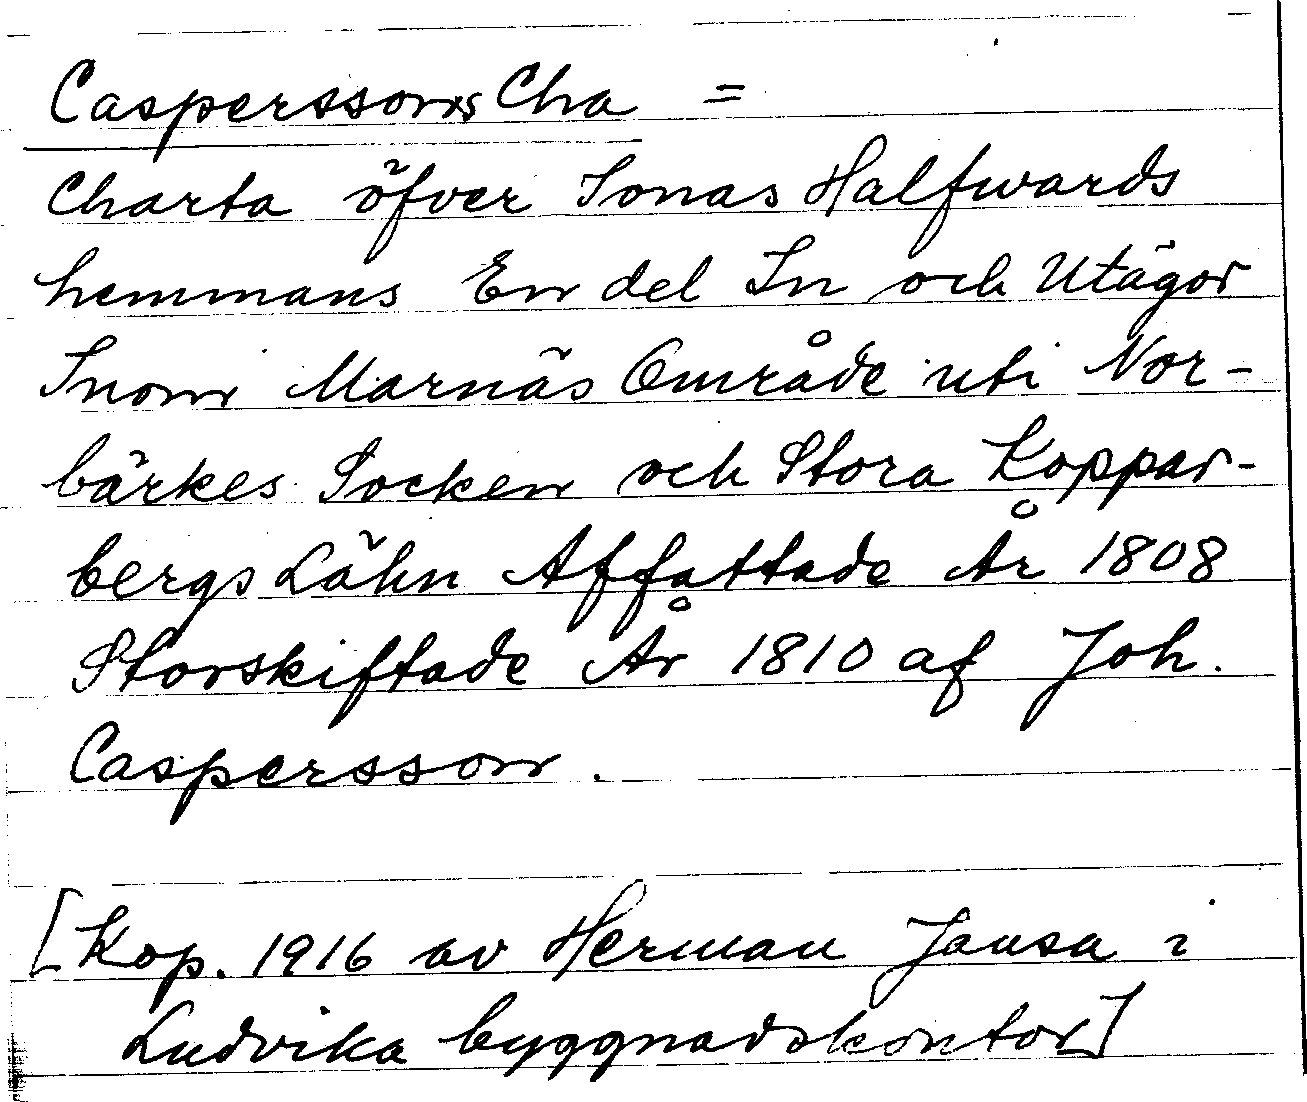 Caspersson<s>s</s> Cha =
Charta öfver Jonas Halfwards
hemmans En del In och Utägor
Inom Marnäs Område uti Nor-
bärkes Socken och Stora Koppar-
bergs Lähn Affattade År 1808
Storskiftade År 1810 af Joh.
Caspersson.
[Kop. 1916 av Herman Jansa i
Ludvika byggnadskontor]